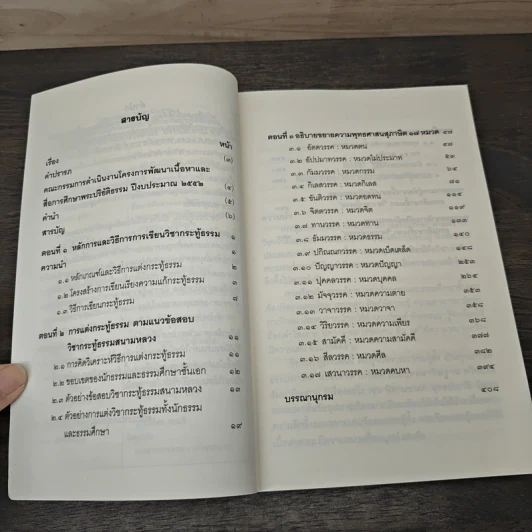 สารบัญ
เรื่อง หน้า
คำปรารภ (๓)
คณะกรรมการดำเนินงานโครงการพัฒนาเนื้อหาและ
สื่อการศึกษาพระปริยัติธรรม ปีงบประมาณ ๒๕๕๒ (๔)
คำนำ (๕)
สารบัญ (๖)
ตอนที่ ๑ หลักการและวิธีการการเขียนวิชากระทู้ธรรม ๑
ความนำ ๑
๑.๑ หลักเกณฑ์และวิธีการแต่งกระทู้ธรรม ๒
๑.๒ โครงสร้างการเขียนเรียงความแก้กระทู้ธรรม ๓
๑.๓ วิธีการเขียนกระทู้ธรรม ๗
ตอนที่ ๒ การแต่งกระทู้ธรรม ตามแนวข้อสอบ
วิชากระทู้ธรรมสนามหลวง ๑๑
๒.๑ การคิดวิเคราะห์วิธีการแต่งกระทู้ธรรม ๑๑
๒.๒ ขอบเขตของนักธรรมและธรรมศึกษาชั้นเอก ๑๒
๒.๓ ตัวอย่างข้อสอบวิชากระทู้ธรรมสนามหลวง ๑๓
๒.๔ ตัวอย่างการแต่งวิชากระทู้ธรรมทั้งนักธรรม
และธรรมศึกษา ๑๙
ตอนที่ ๓ อธิบายขยายความพุทธศาสนสุภาษิต ๑๗ หมวด ๔๗
๓.๑ อัตตวรรค : หมวดตน ๔๗
๓.๒ อัปปมาทวรรค : หมวดไม่ประมาท ๕๓
๓.๓ กัมมวรรค : หมวดกรรม ๖๔
๓.๔ กิเลสวรรค : หมวดกิเลส ๘๑
๓.๕ ขันติวรรค : หมวดอดทน
๓.๖ จิตตวรรค : หมวดจิต
๓.๗ ทานวรรค : หมวดทาน ๑๓๓
๓.๘ ธัมมวรรค : หมวดธรรม ๑๔๐
๓.๙ ปกิณณกวรรค : หมวดเบ็ดเตล็ด
๓.๑๐ ปัญญาวรรค : หมวดปัญญา ๒๕๓
๓.๑๑ ปุคคลวรรค : หมวดบุคคล ๒๖๔
๓.๑๒ มัจจุวรรค : หมวดความตาย ๓๕๓
๓.๑๓ วาจาวรรค : หมวดวาจา ๓๕๘
๓.๑๔ วิริยวรรค : หมวดความเพียร ๓๖๘
๓.๑๕ สามัคคี : หมวดความสามัคคี ๓๗๗
๓.๑๖ สีลวรรค : หมวดศีล ๓๘๒
๓.๑๗ เสวนาวรรค : หมวดคบหา ๓๙๔
บรรณานุกรม ๔๐๘